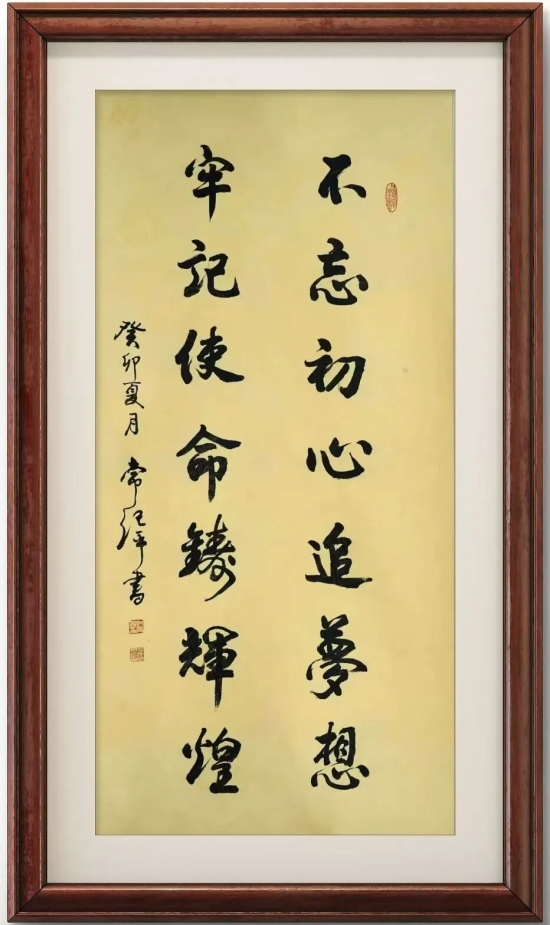 不忘初心追夢想
牢記使命鑄輝煌
癸卯夏月 常江平書